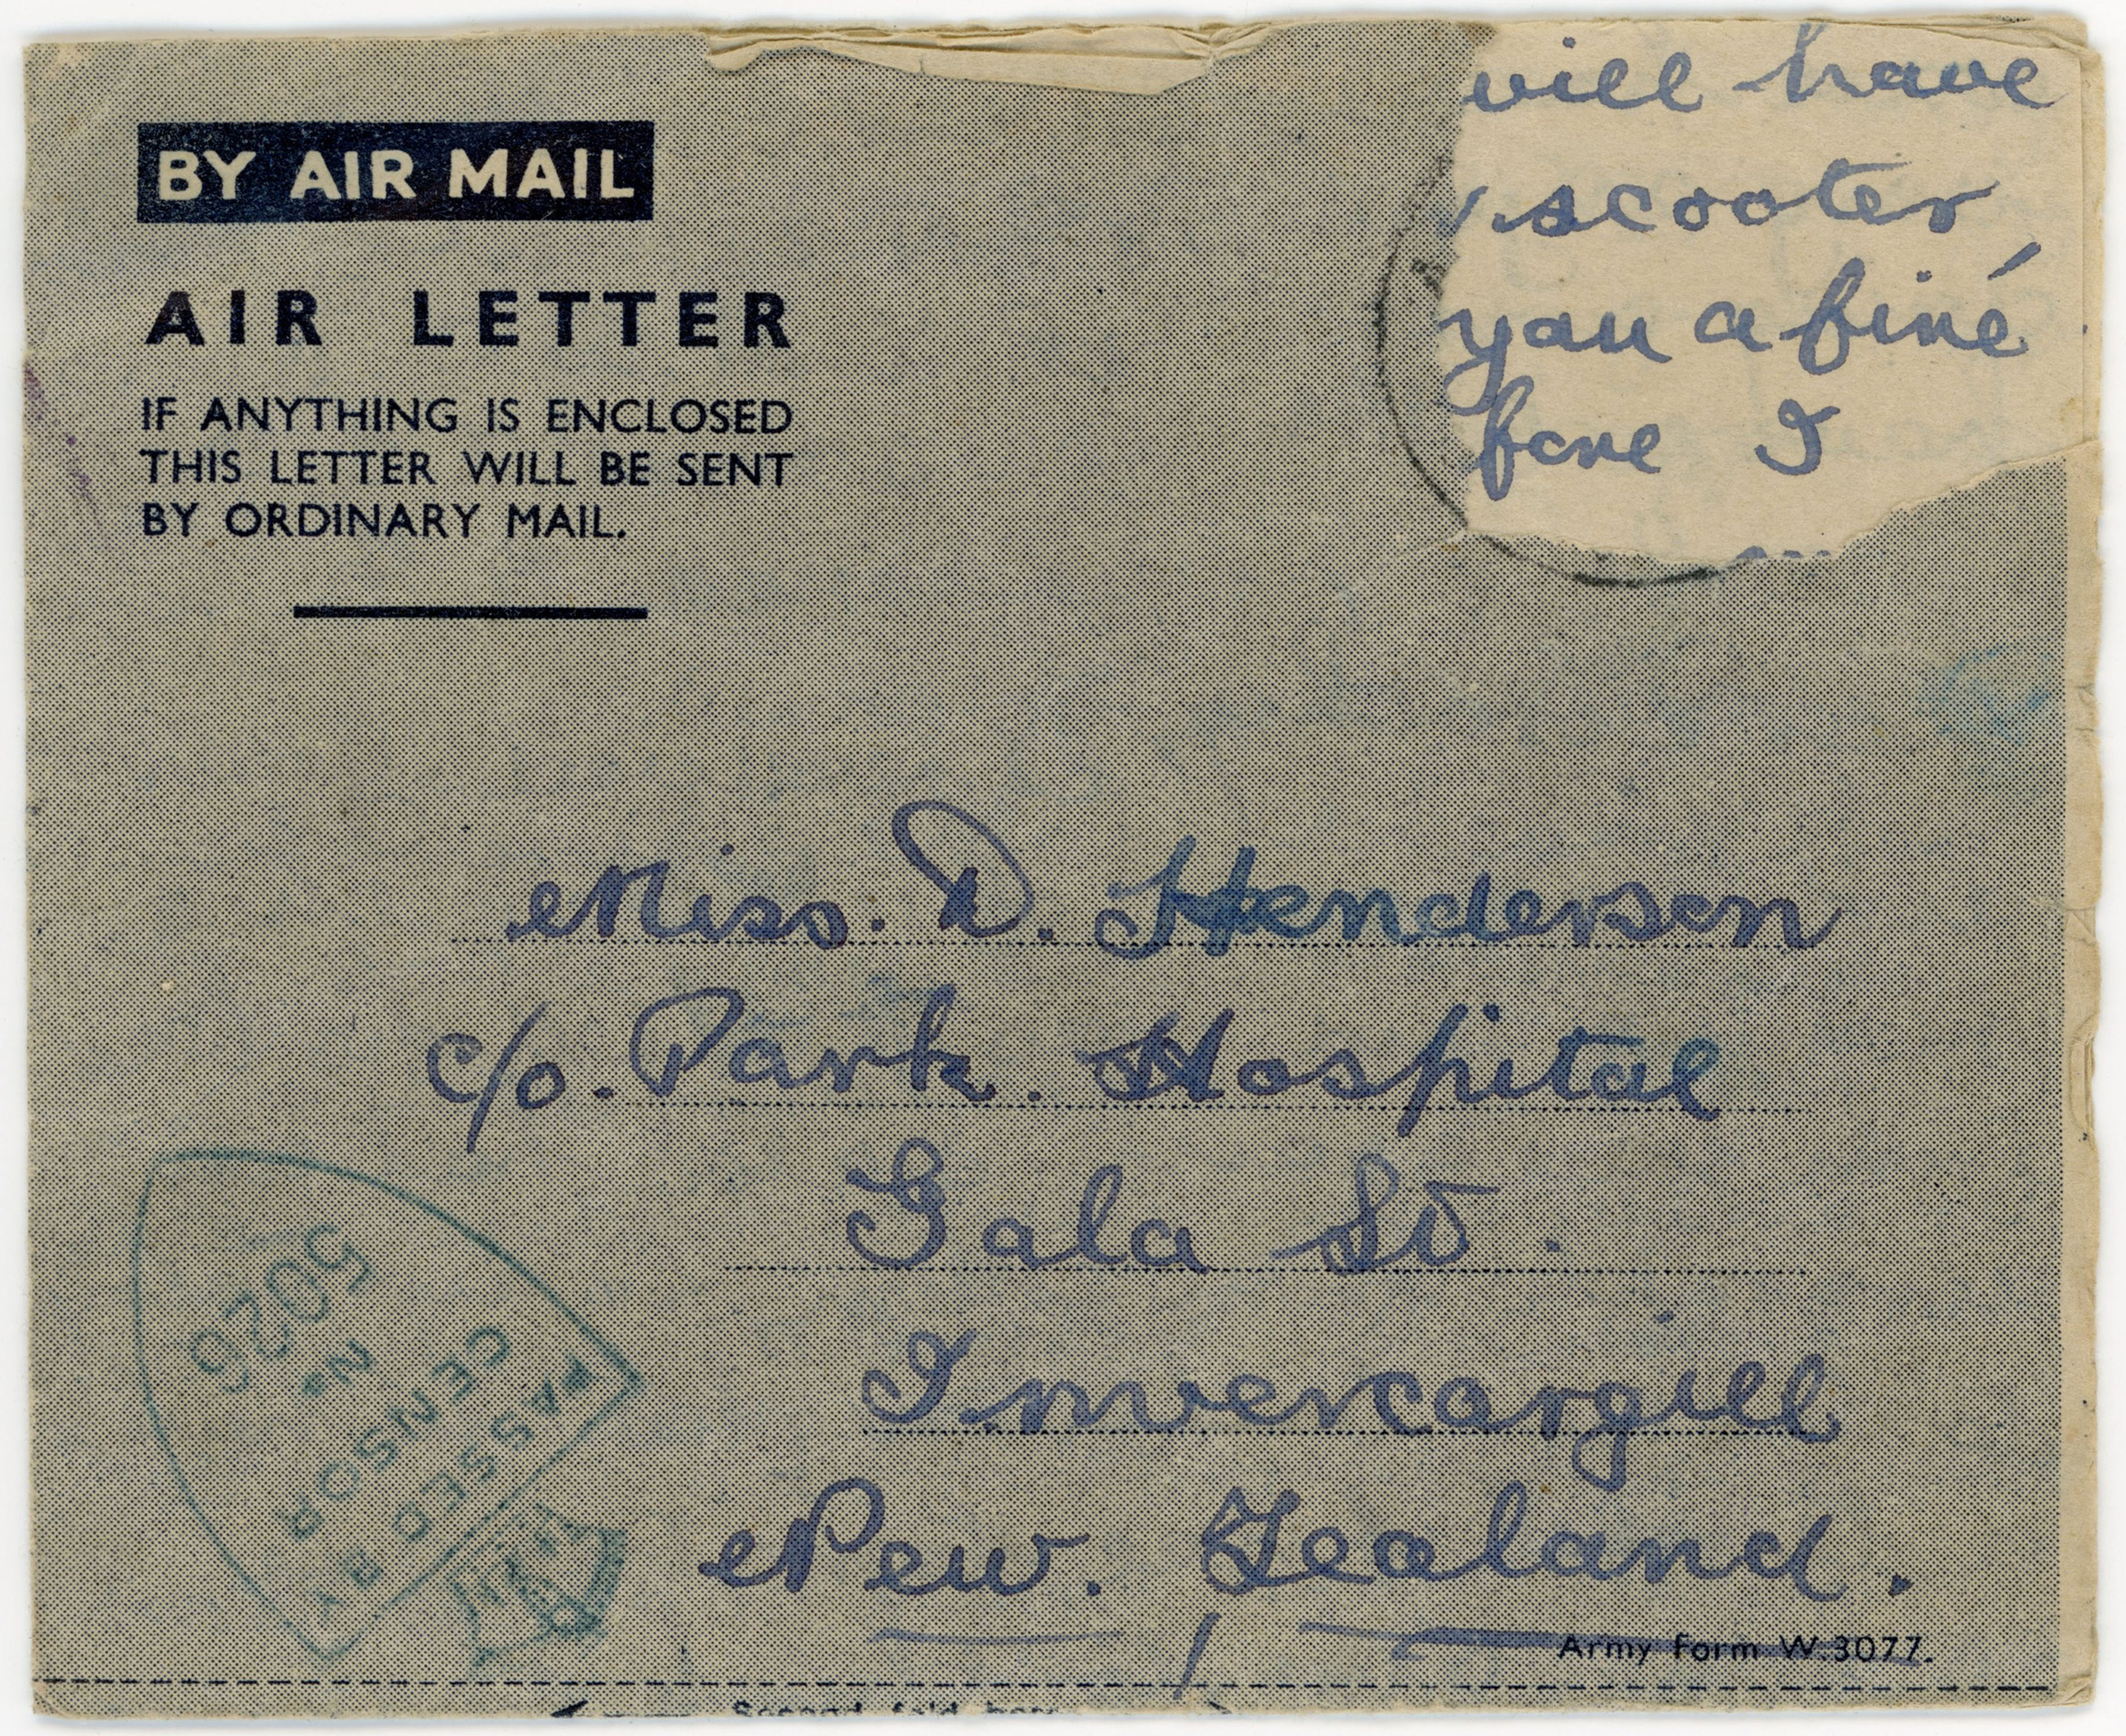 BY AIR MAIL
AIR LETTER
IF ANYTHING IS ENCLOSED
THIS LETTER WILL BE SENT
BY ORDINARY MAIL.
will have
scooter
you a fine
fore I
Miss. D. Henderson
c/o. Park. Hospital
Gala St.
Invercargill
New. Zealand.
PASSED BY
CENSOR
No
5026
Army Form W.3077.
Second fold here